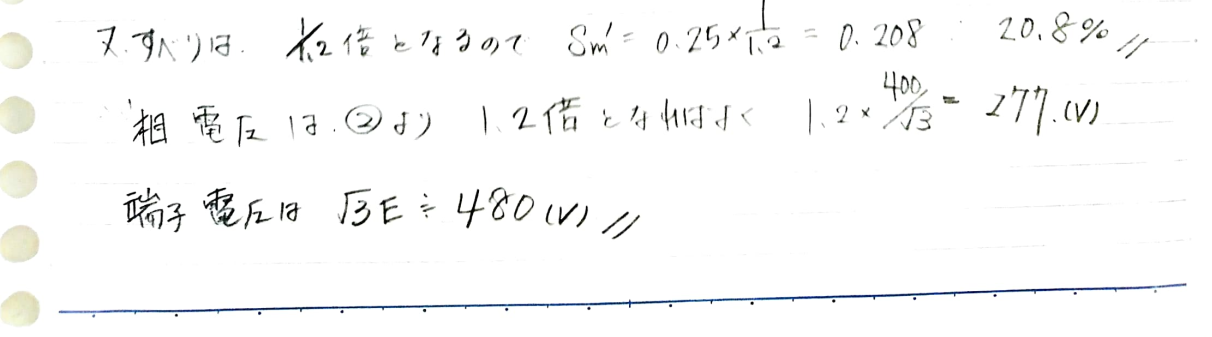 又、すべりは. 1/1.2倍となるので Sm' = 0.25×1/1.2 = 0.208 : 20.8% //
相電圧は.②より 1.2倍となればよく 1.2×400/√3 = 277.(V)
端子電圧は √3E ≒ 480(V) //